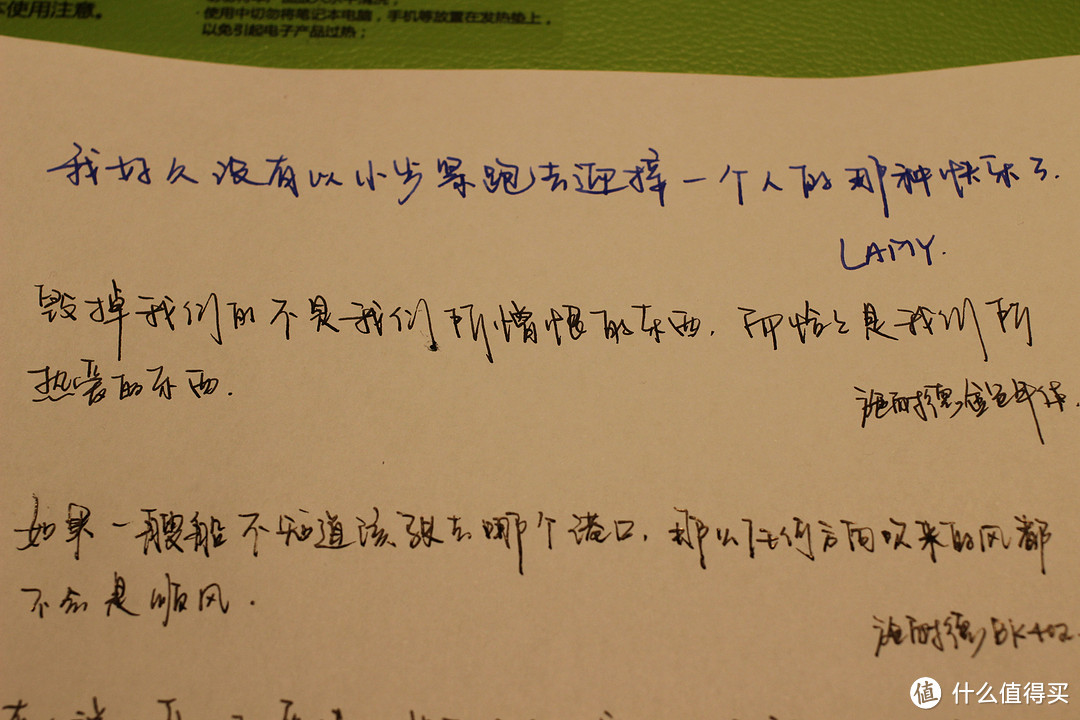 本使用注意。
·使用中切勿将笔记本电脑，手机等放置在发热垫上，
以免引起电子产品过热；
我好久没有以小步紧跑去迎接一个人的那种快乐了.
LAMY.
毁掉我们的不是我们所憎恨的东西，而恰恰是我们所
热爱的东西.
施耐德
如果一艘船不知道该驶去哪个港口，那么任何方向吹来的风都
不会是顺风.
施耐德BK402
值 什么值得买